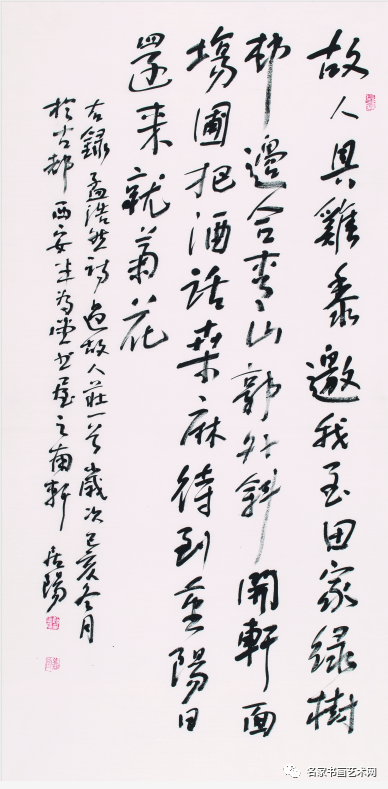 故人具雞黍邀我至田家綠樹
邨邊合青山郭外斜開軒面
場圃把酒話桒麻待到重陽日
還来就菊花
右錄孟浩然詩過故人莊一首歲次己亥冬月
於古都西安半為堂書屋之南軒 居陽
名家书画艺术网